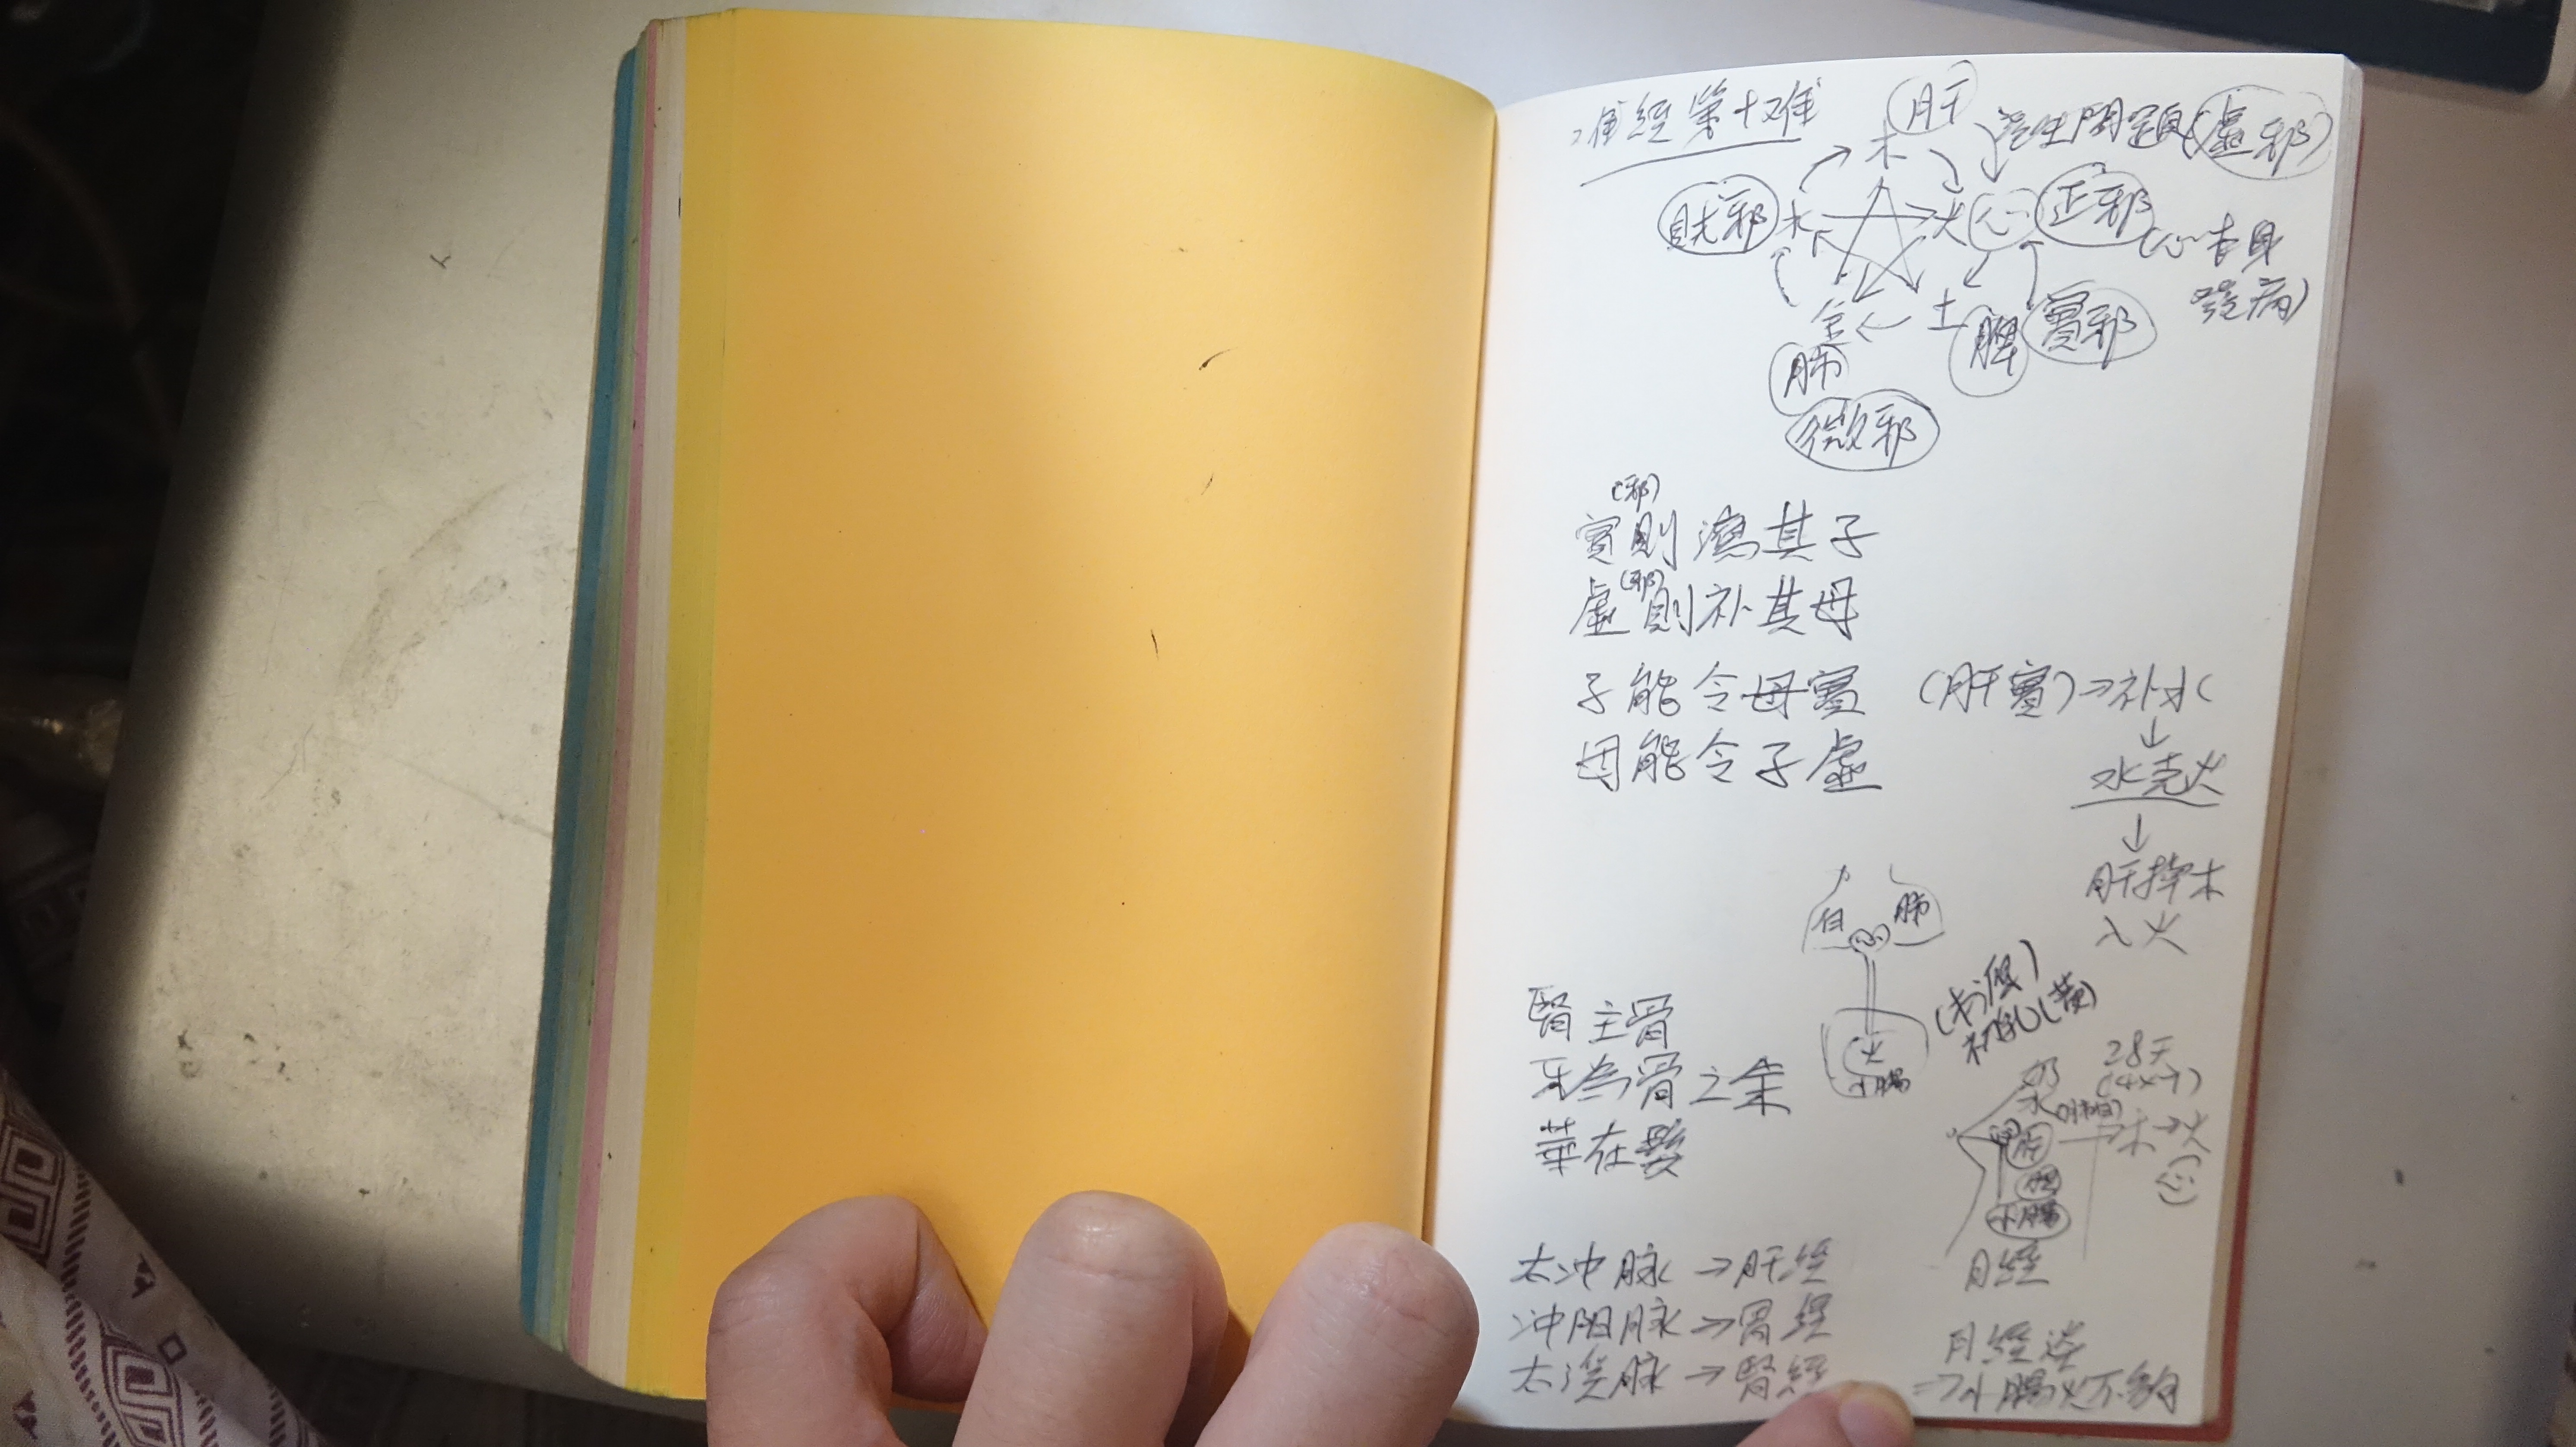 难經第十难
肝
木
產生問題(虛邪)
賊邪
水
火
心
正邪
(心本身
發病)
金
土
肺
脾
實邪
微邪
(邪)
實則瀉其子
(邪)
虛則补其母
子能令母實
(肝實)→补水
↓
水克火
↓
肝掉木
入火
母能令子虛
白
肺
心
火
小腸
腎主骨
牙為骨之余
華在髮
初乳(黄)
28天
(4×7)
奶
水
→木→火
(心)
小腸
月經
太冲脉→肝經
冲阳脉→胃經
太溪脉→腎經
月經淡
→小腸火不夠